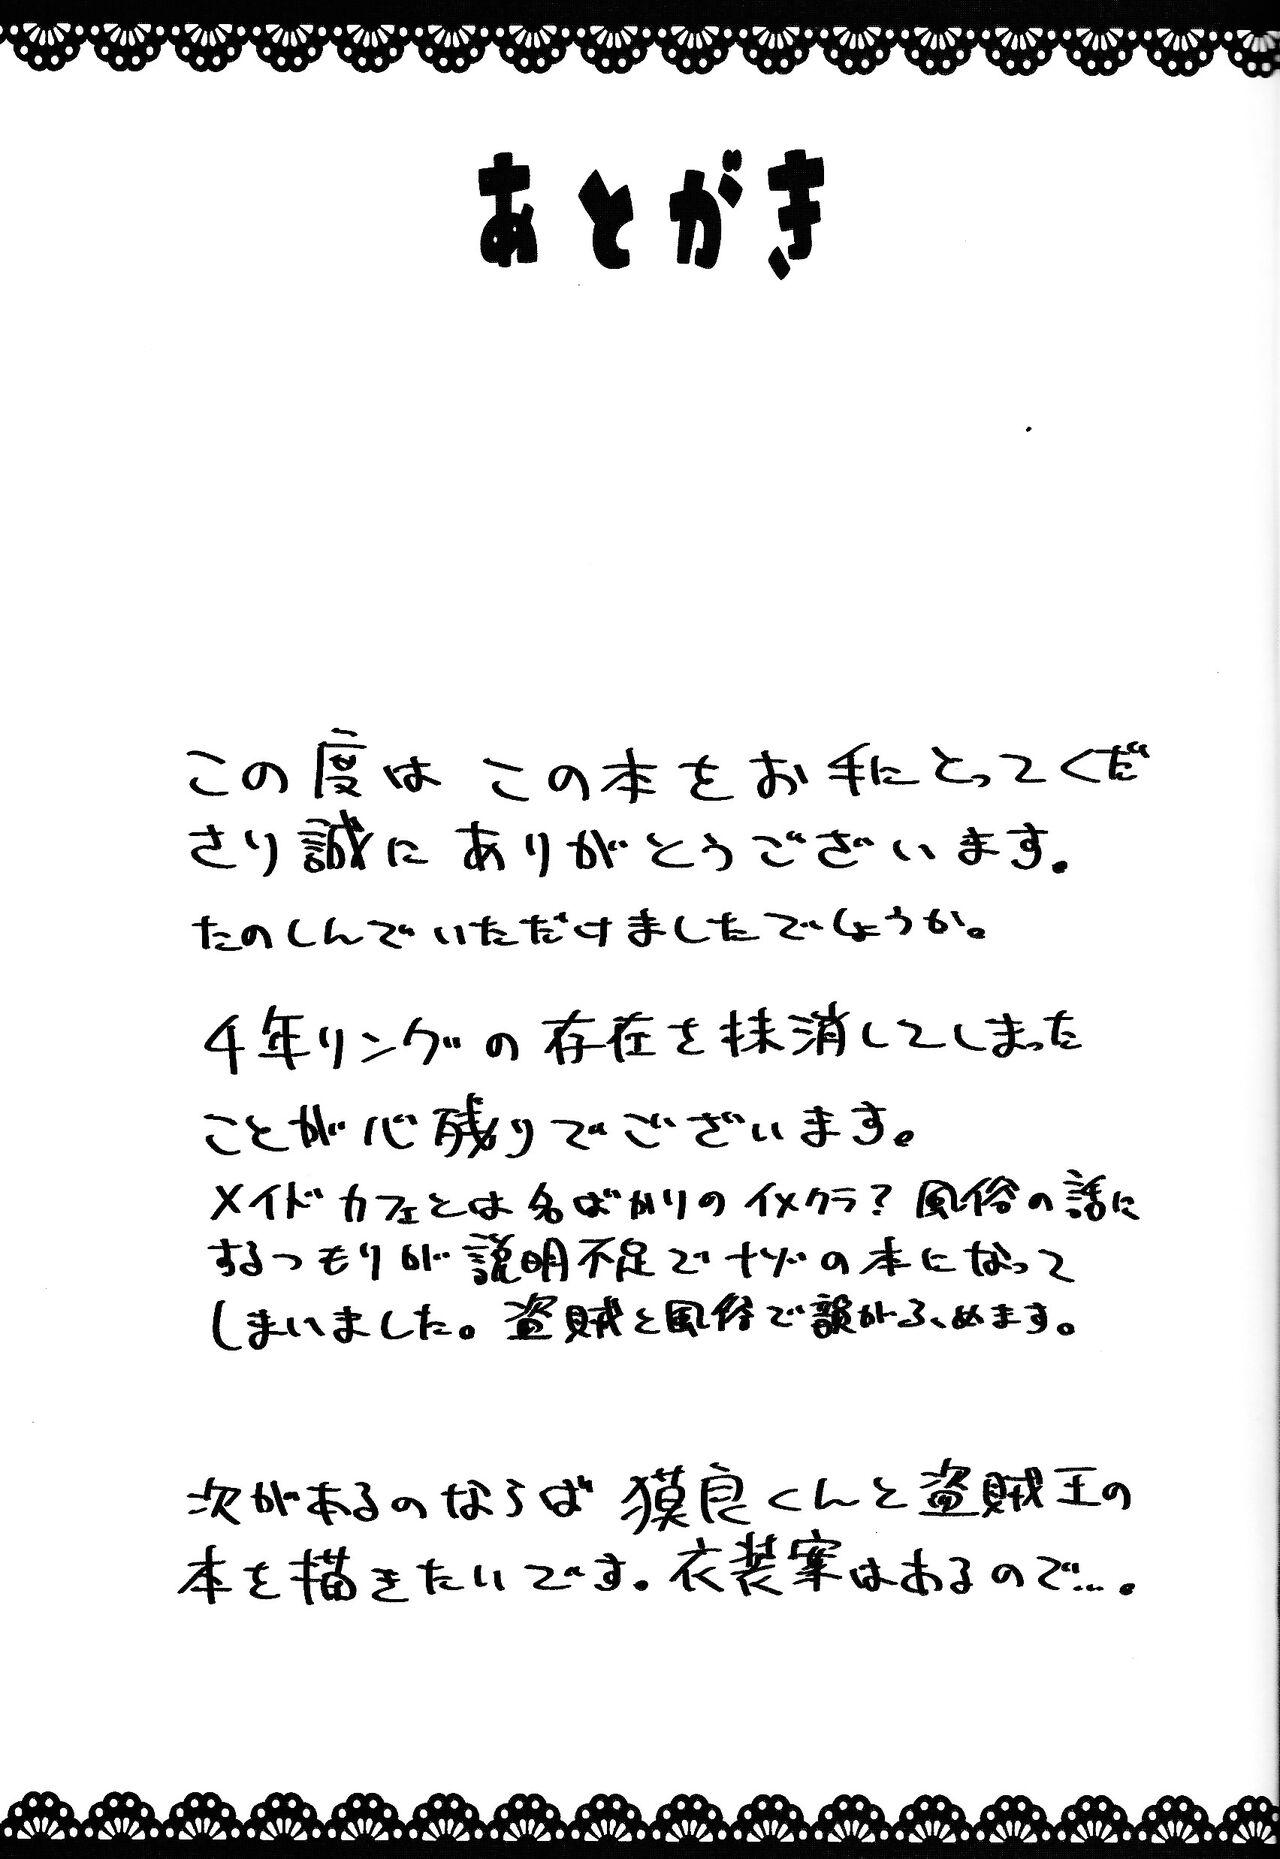 あとがき
この度は この本をお手にとってくだ
さり誠に ありがとうございます。
たのしんでいただけましたでしょうか。
千年リングの存在を抹消してしまった
ことが心残りでございます。
メイドカフェとは名ばかりのイメクラ？風俗の話に
するつもりが説明不足でナゾの本になって
しまいました。盗賊と風俗で韻がふめます。
次があるのならば 獏良くんと盗賊王の
本を描きたいです。衣装案はあるので…。